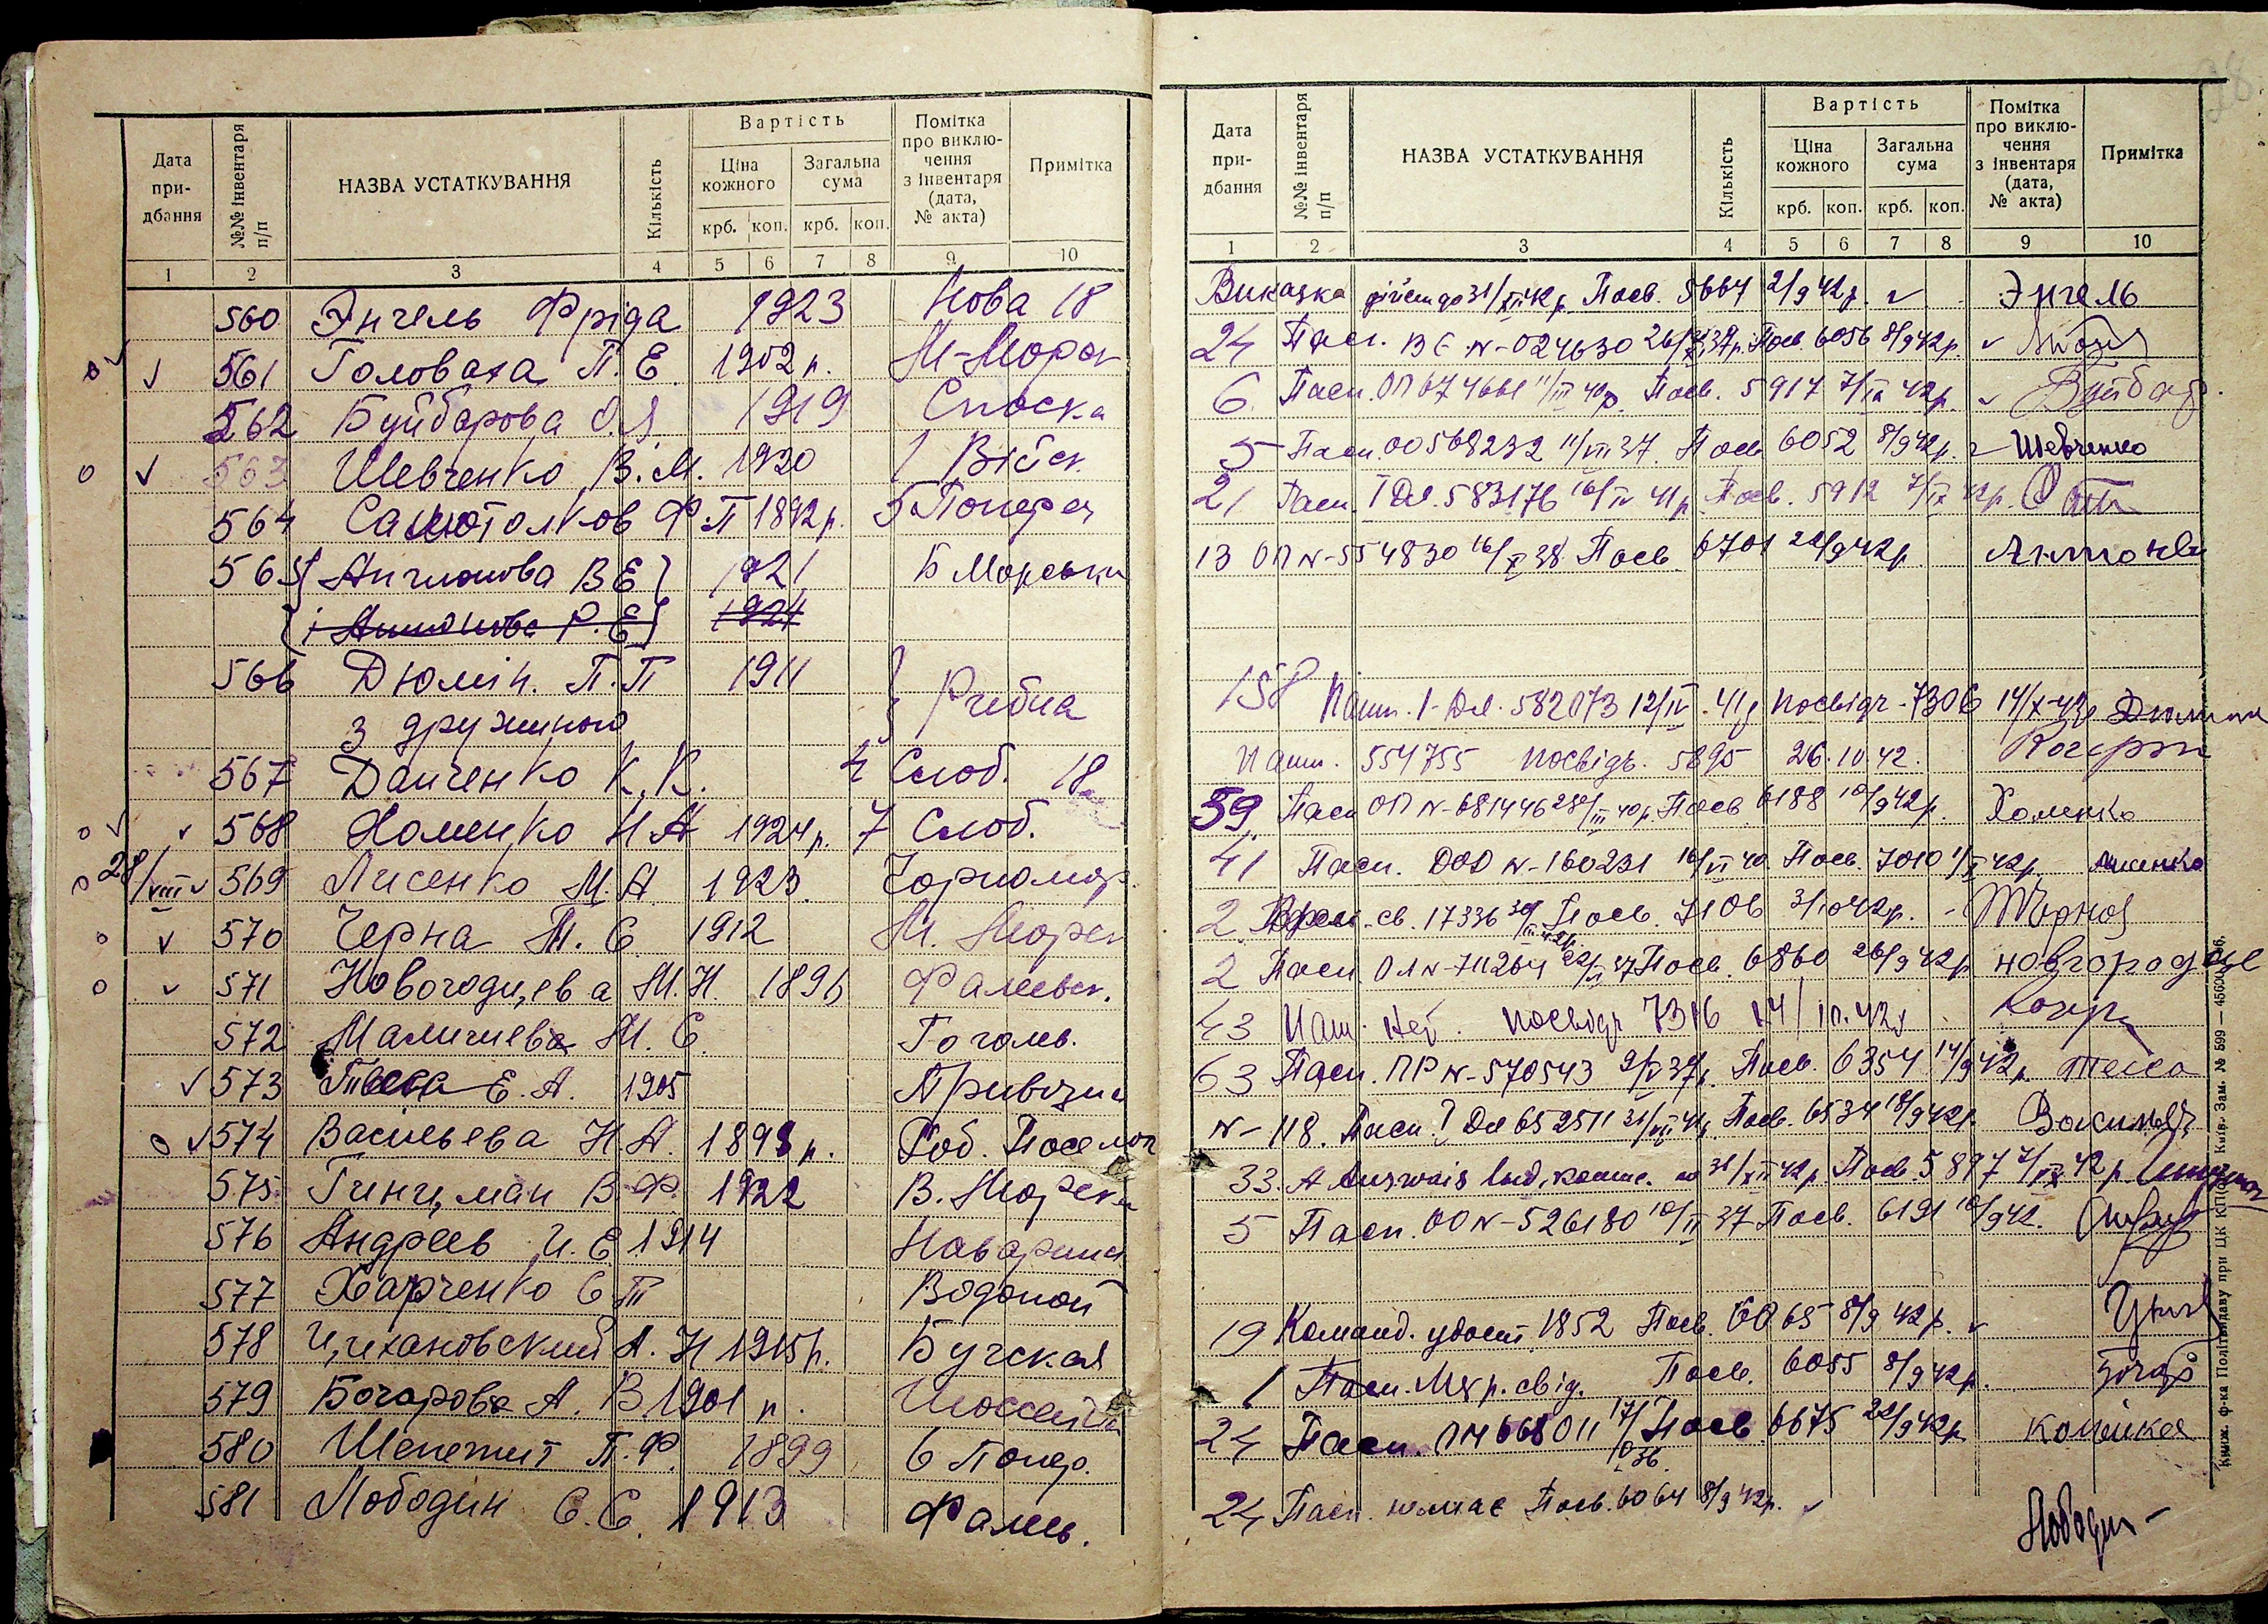 Дата придбання №№ інвентаря п/п НАЗВА УСТАТКУВАННЯ Кількість Вартість Ціна кожного крб. коп. Загальна сума крб. коп. Помітка про виключення з інвентаря (дата, № акта) Примітка
1 2 3 4 5 6 7 8 9 10
560 Энгель Фріда 1923 Нова 18
561 Головаха П. Е. 1902 р. М-Морск
562 Буйбарова О.Я. 1919 Спаска
563 Шевченко В.М. 1920 1 Війск
564 Самотолков Ф.П 1892 р. 5 Попереч
565 Антонова В Е 1921 Б Морськи
і Антонова Р. Е 1924
566 Дюмін. П. П 1911
з дружиною Рибна
567 Данченко К. К. 4 Слоб. 18
568 Хоменко Н А 1924 р. 7 Слоб.
28/VIII 569 Лисенко М. А 1923. Чорномор.
570 Черна М. С 1912 М. Морск
571 Новогодцева М. Н. 1896 Фалеевск.
572 Маличиева М. С. Гоголь.
573 Тєска Е. А. 1905 Привозна
574 Васильева Н А. 1898 р. Роб. Поселок
575 Гинцман В Ф. 1922 В. Морска
576 Андреев И. Е 1914 Наваринск
577 Харченко С Т Водопой
578 Цихановский А. Н 1915 р. Бугская
579 Бочарова А. В 1901 р. Шоссейна
580 Шепетит П. Ф. 1899 6 Попер.
581 Лободин С. С. 1913 Фалеев.
Дата придбання №№ інвентаря п/п НАЗВА УСТАТКУВАННЯ Кількість Вартість Ціна кожного крб. коп. Загальна сума крб. коп. Помітка про виключення з інвентаря (дата, № акта) Примітка
1 2 3 4 5 6 7 8 9 10
Виказка дійсна до 31/XII 42 р. Посв. 5664 2/9 42 р. Энгель
24 Пасп. ВЕ N-024630 37 р. Посв. 6056 8/9 42 р.
6 Пасп. ОП 674661 11/III 40 р. Посв. 5917 7/IX 42 р. Буйбар.
5 Пасп. ОО 568232 11/VIII 37. Посв 6052 8/9 42 р. Шевченко
21 Пасп. І Дл. 583176 16/IV 41 р Посв. 5912 7/IX 42 р.
13 ОП N-554830 16/X 38 Посв. 6701 24/9 42 р. Антонов
158 Пашп. 1-Дл. 582073 12/IV. 41 р посвідч-7306 14/X-42 р Дюмин
Пашп. 554755 посвідч. 5895 26.10.42.
59. Пасп ОП N-681446 28/III 40 р Посв. 6188 10/9 42 р. Хоменко
41 Пасп. ДОД N-160231 16/VI 40. Посв. 7010 1/X 42 р. Лисенко
2 св. 17336 Посв. 7106 3/10 42 р. - Чорноя
2 Пасп. ОЛ N-711264 37 Посв. 6860 26/9 42 р новгородце
43 Паш. Неt. посвідч 7316 14/10. 42 р
63 Пасп. ПР N-570543 9/V 37 р. Посв. 6354 14/9 42 р. Теска
N-118. Пасп. І Дл 652511 31/VII 41 р. Посв. 6534 18/9 42 р. Васильев
33. A Ausweis до 31/XII 42 р. Посв. 5897 7/IX 42 р
5 Пасп. ОО N-526180 10/II 37 Посв. 6191 10/9 42.
19 Команд. удост 1852 Посв. 6065 8/9 42 р.
1 Пасп. Мкр. свід. Посв. 6055 8/9 42 р. Бочар
24 Пасп. ПМ 668011 17/X 36. Посв. 6675 22/9 42 р
24 Пасп. немає Посв. 6064 8/9 42 р. Лободин
Книж. ф-ка Політвидаву при ЦК КП(б)У, Київ. Зам. № 599 —